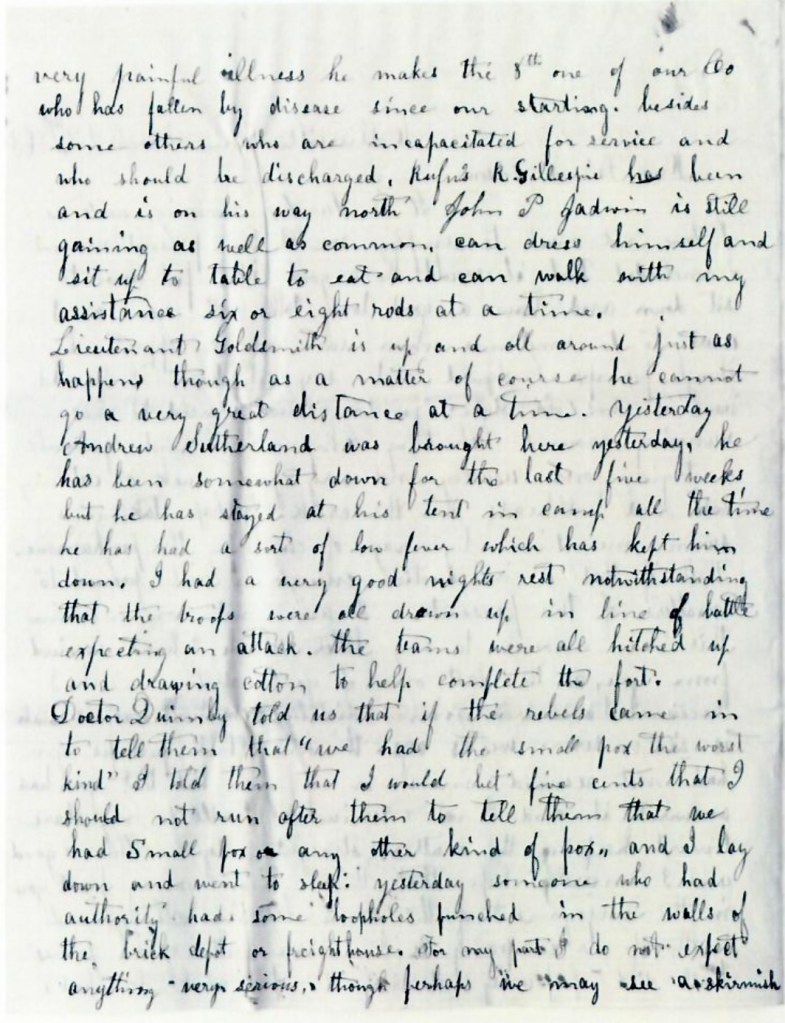 very painful illness he makes the 8th one of our Co
who has fallen by disease since our starting. besides
some others who are incapacitated for service and
who should be discharged, Rufus K. Gillespie has been
and is on his way north John P Jadwin is still
gaining as well as common, can dress himself and
sit up to table to eat and can walk with my
assistance six or eight rods at a time.
Lieutenant Goldsmith is up and all around just as
happens though as a matter of course he cannot
go a very great distance at a time. yesterday
Andrew Sutherland was brought here yesterday, he
has been somewhat down for the last five weeks
but he has stayed at his tent in camp all the time
he has had a sort of low fever which has kept him
down. I had a very good nights rest notwithstanding
that the troops were all drawn up in line of battle
expecting an attack. the teams were all hitched up
and drawing cotton to help complete the fort.
Doctor Quimby told us that if the rebels came in
to tell them that "we had the small pox the worst
kind" I told them that I would bet five cents that I
should not run after them to tell them that we
had Small pox or any other kind of pox,, and I lay
down and went to sleep. yesterday someone who had
authority had some loopholes punched in the walls of
the brick depot or freighthouse. For my part I do not expect
anything very serious, though perhaps we may see a skirmish